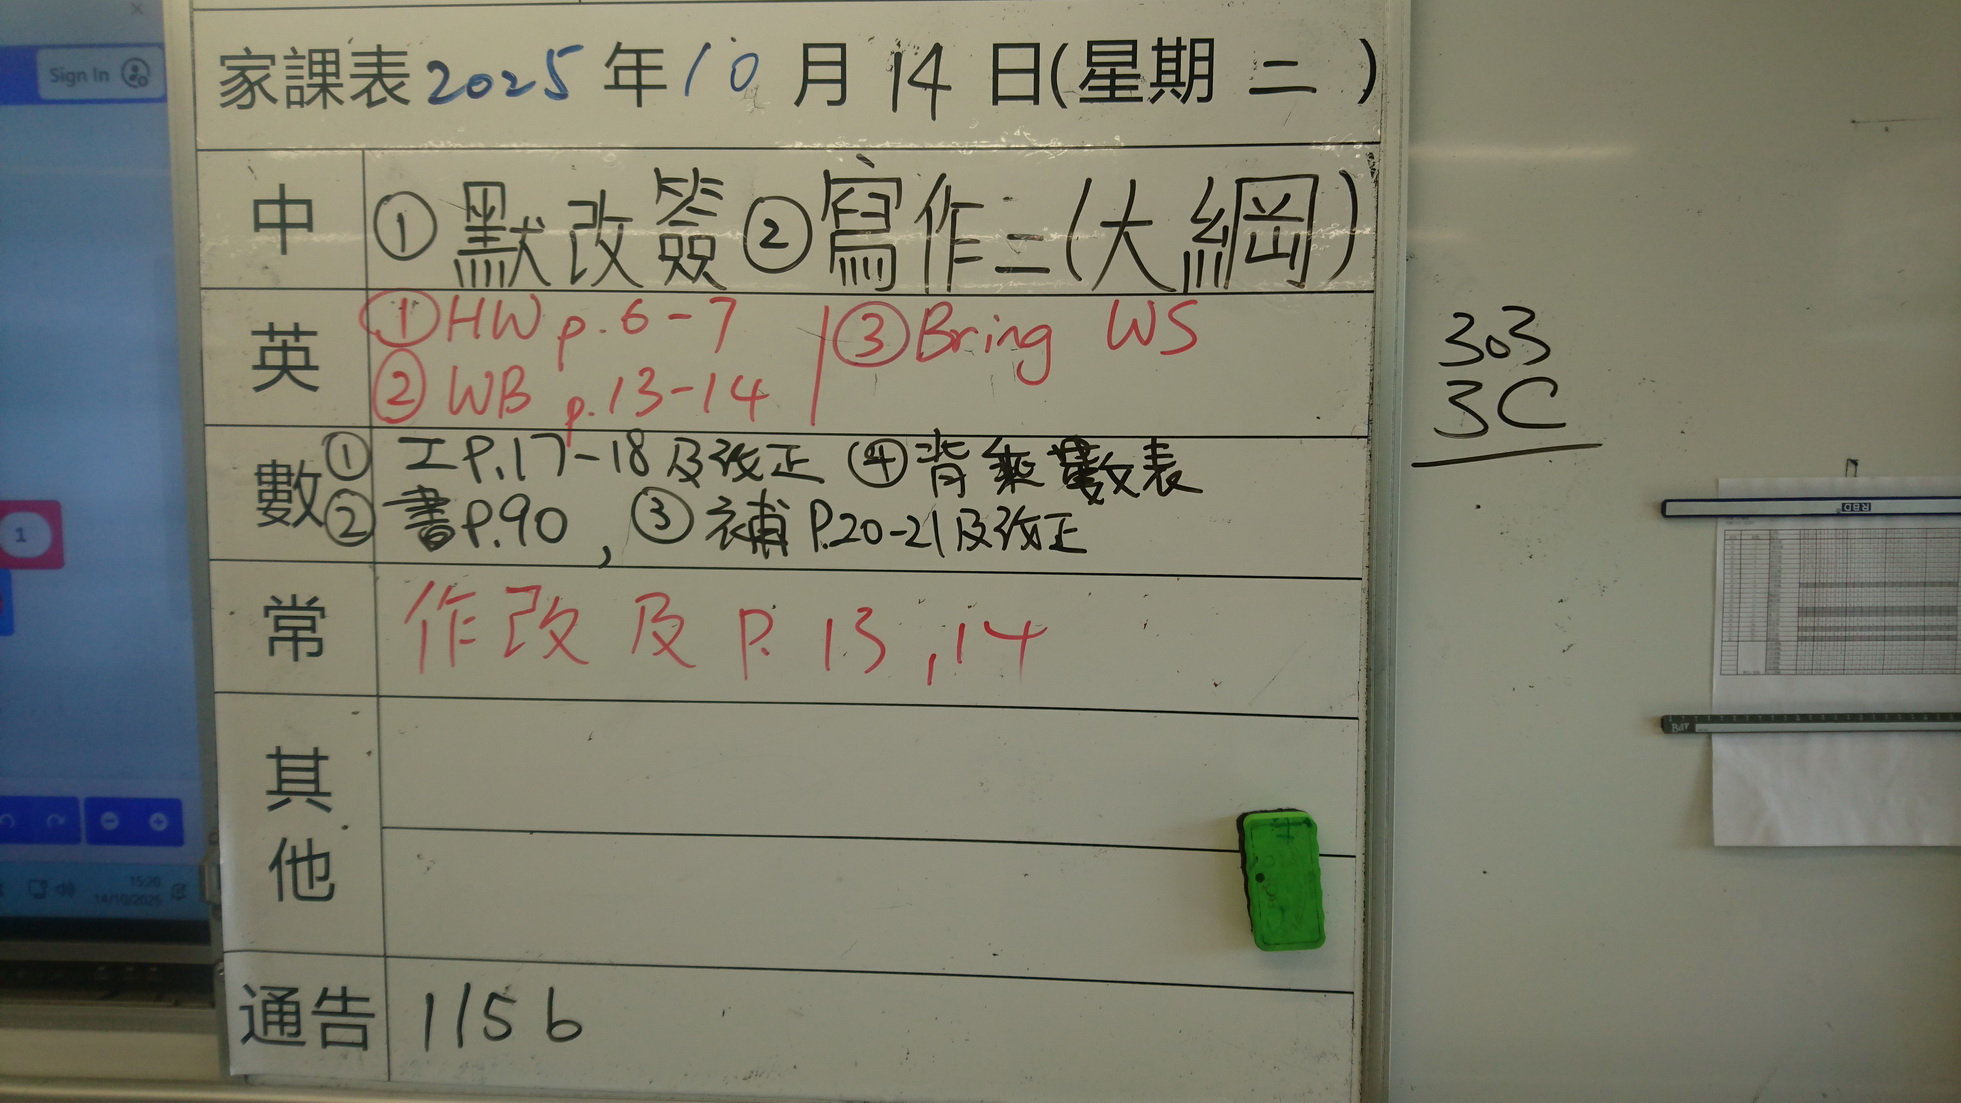 Sign In
家課表 2025 年 10 月 14 日(星期 二 )
中 ① 默改簽 ② 寫作二(大綱)
英 ① HW p.6-7 ③ Bring WS
② WB p.13-14
數 ① 工P.17-18及改正 ④ 背乘數表
② 書P.90, ③ 補 P.20-21及改正
常 作改及 P. 13,14
其他
通告 115b
303
3C
1
15:20
14/10/2025